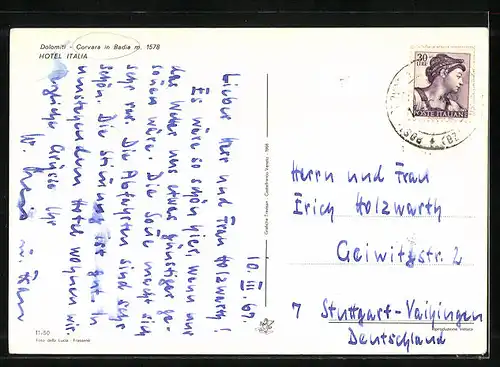 Dolomiti - Corvara in Badia m. 1578
HOTEL ITALIA
10. III. 67.
Lieber Herr und Frau Holzwarth!
Es wäre so schön hier, wenn nur
das Wetter uns etwas günstiger ge-
sonnen wäre. Die Sonne macht sich
sehr rar. Die Abfahrten sind sehr
schön. Die Stimmung ist gut. In
umstehendem Hotel wohnen wir.
Herzliche Grüsse Ihr
u. Frau
30
LIRE
POSTE ITALIANE
Herrn und Frau
Erich Holzwarth
Geiwitzstr. 2
7 Stuttgart-Vaihingen
Deutschland
11-50
Foto della Lucia - Frassené
Riproduzione vietata